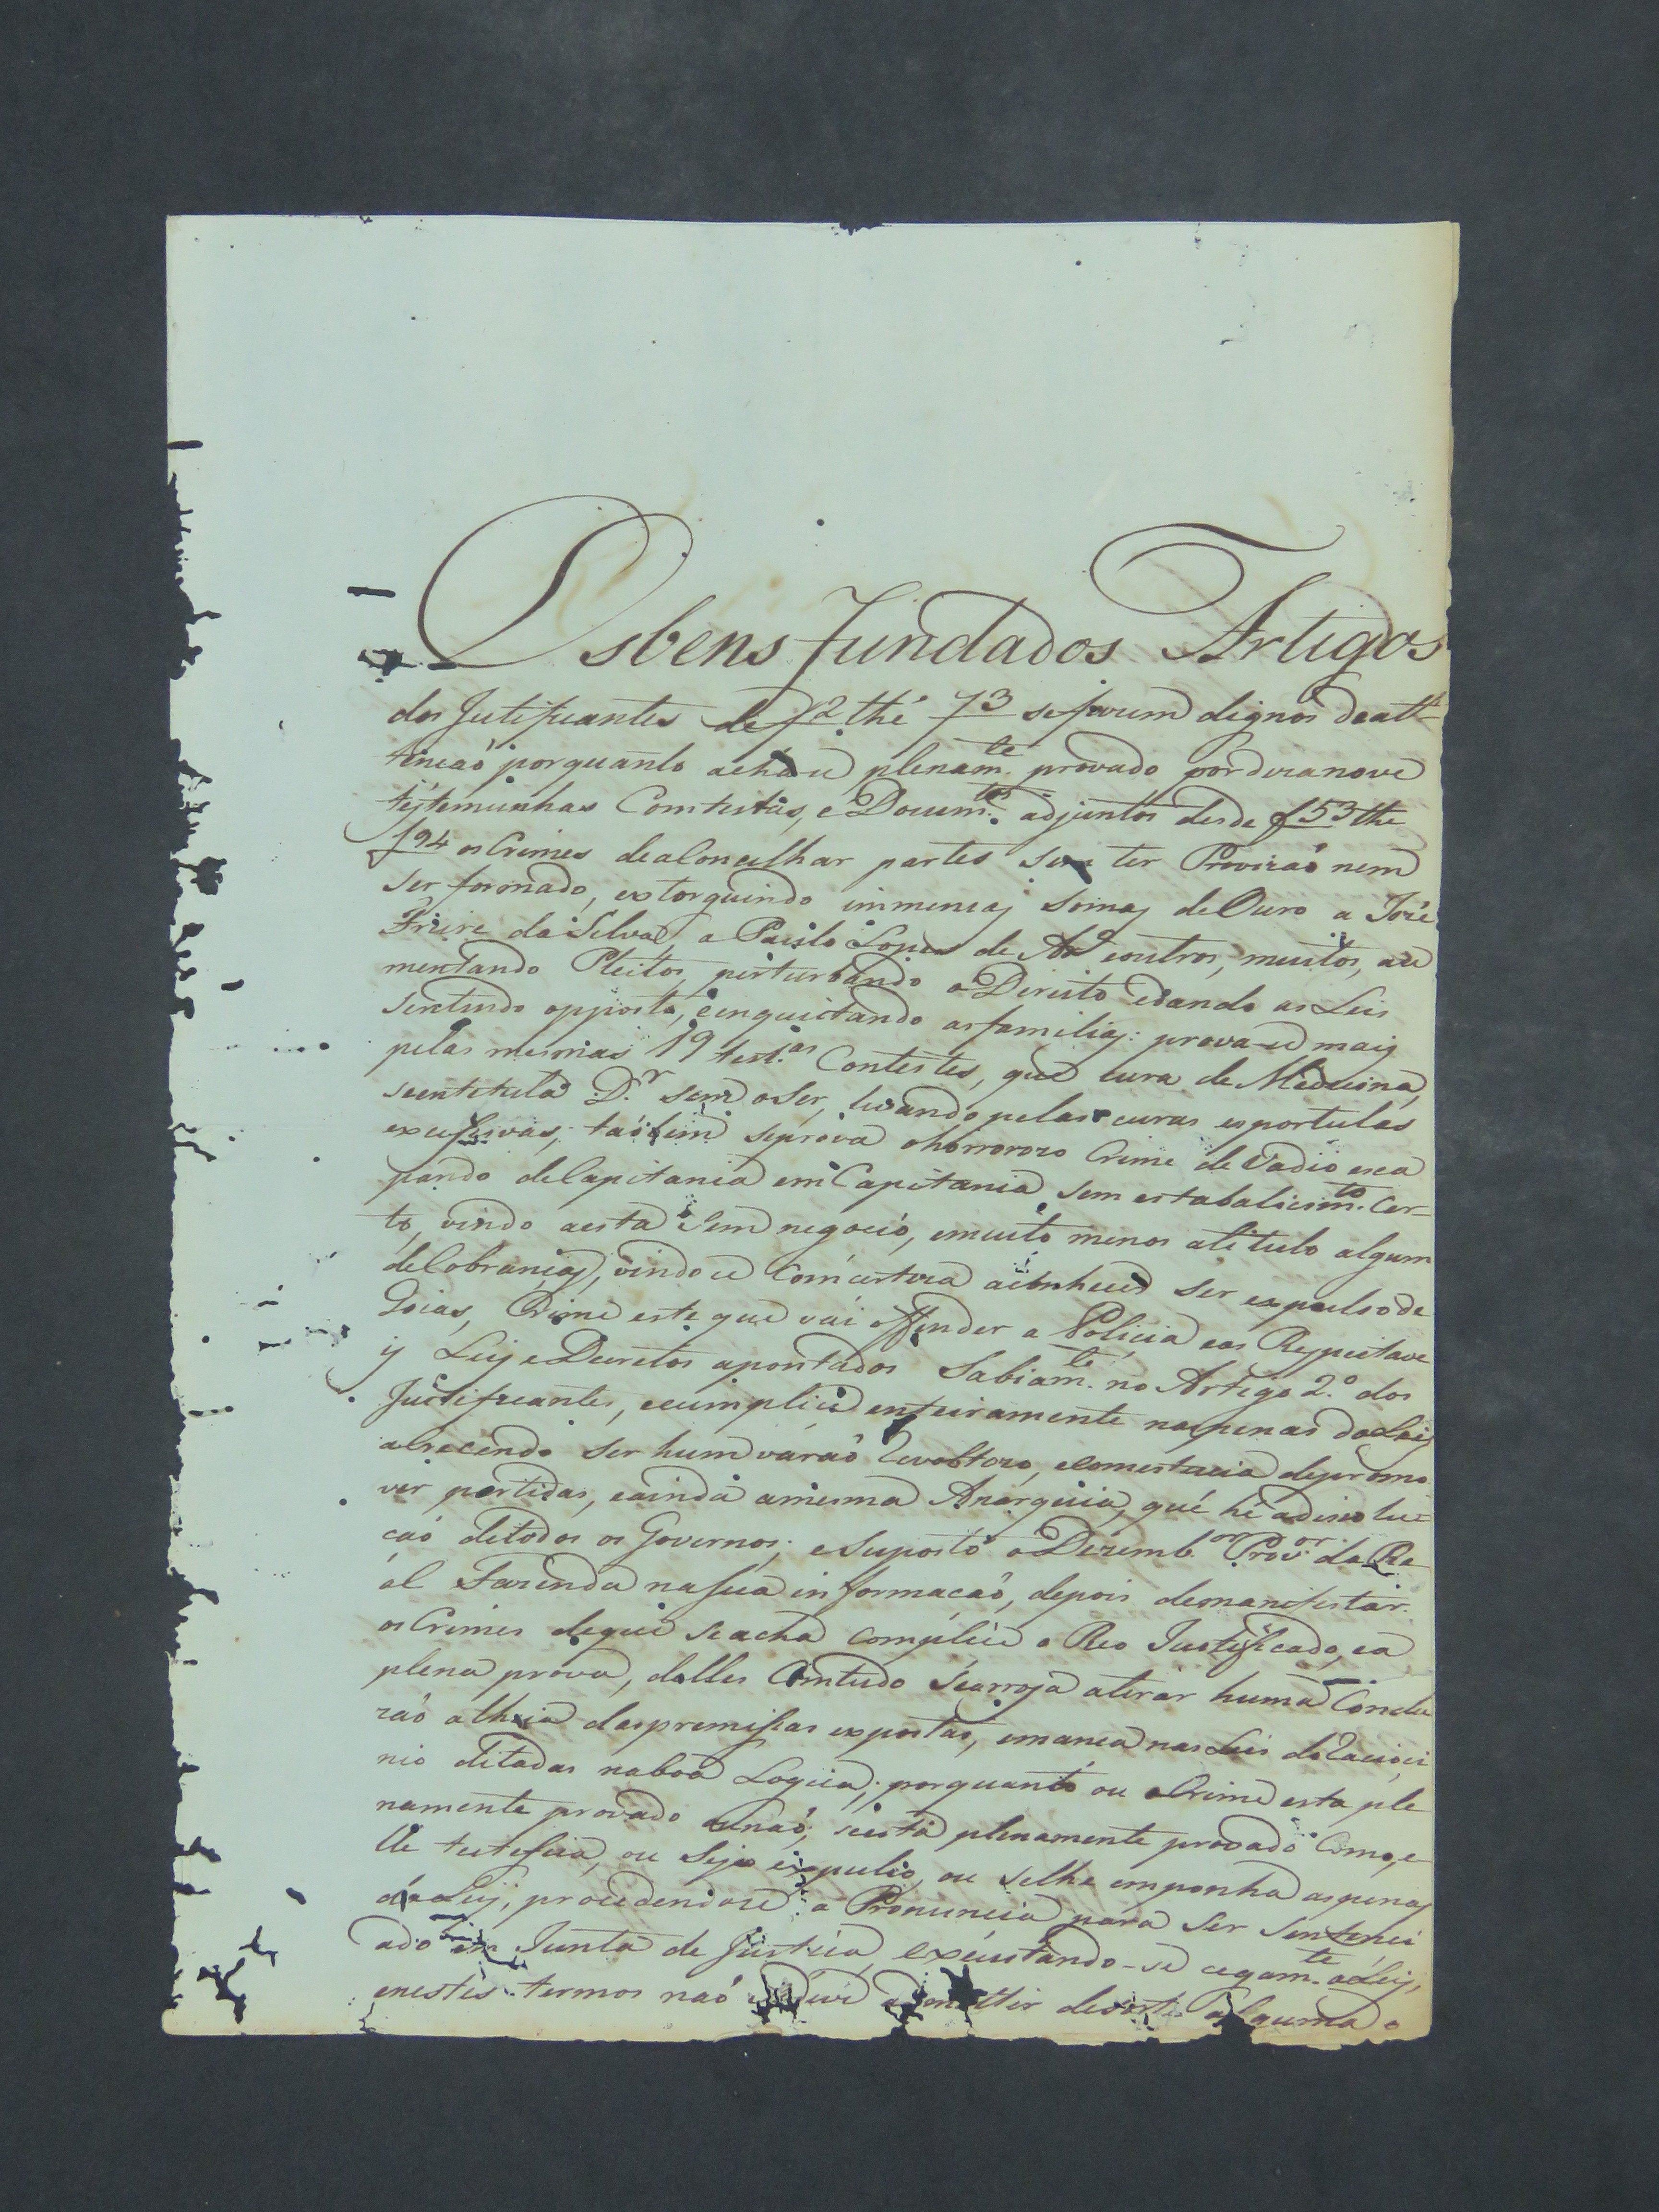 Osbens fundados Artigos
dos Justificantes de f2 thé f3 se fazem dignos deatt-
tencaó porquanto achase plenam.te provado pordezanove
testemunhas Contestas, e Docum.tos adjuntos desde f53 the
f94 osCrimes deaConcelhar partes sem ter Provizaó nem
ser formado, extorquindo immensas Somas deOuro a José
Freire daSilva, a Paulo Lopes de Ar.o eoutros, muitos, au
mentando Pleitos, perturbando oDireito edando as Leis
Sentendo opposto, einquietando asfamilias: prova-se mais
pelas mesmas 19 test.as Contestes, que cura de Medecina,
seentetula D.r sem oSer, levando pelas curas esportulas
excessivas; taóbem seprova ohorrorozo Crime de Vadio esca
pando deCapitania em Capitania sem estabalicim.to Cer-
to, vindo aesta Sem negocio, emuito menos atitulo algum
deCobranças, vindose Comcerteza aconhecer ser expulsode
Goias, Crime este que vai offender a Policia eas Respeitave
is Leis e Decretos apontados Sabiam.te no Artigo 2.º dos
Justificantes, ecumplice enteiramente naspenas daLei
acrecendo ser hum varaó revoltozo, ecomestucia depromo
ver partidas, eainda amesma Anarquia, que hé adissolu=
caó detodos os Governos; eSuposto oDezemb.or Prov.or da Re-
al Fazenda naSua informacaó, depois demanifestar
osCrimes deque seacha Complice o Reo Justificado, ea
plena prova, delles Comtudo Searroja atirar huma Conclu
zaó alheia daspremissas expostas, emanca nas Leis doracioci
nio ditadas naboa Logica; porquanto ou oCrime esta ple
namente provado ounaó; seesta plenamente provado Como, e
lle testefica, ou Seja expulso, ou selhe emponha aspenas
daLey, procedendose a Pronuncia para Ser Sentenci
ado em Junta de Justica, executando-se cegam.te aLey,
enestes termos naó deve admittir desorte alguma o